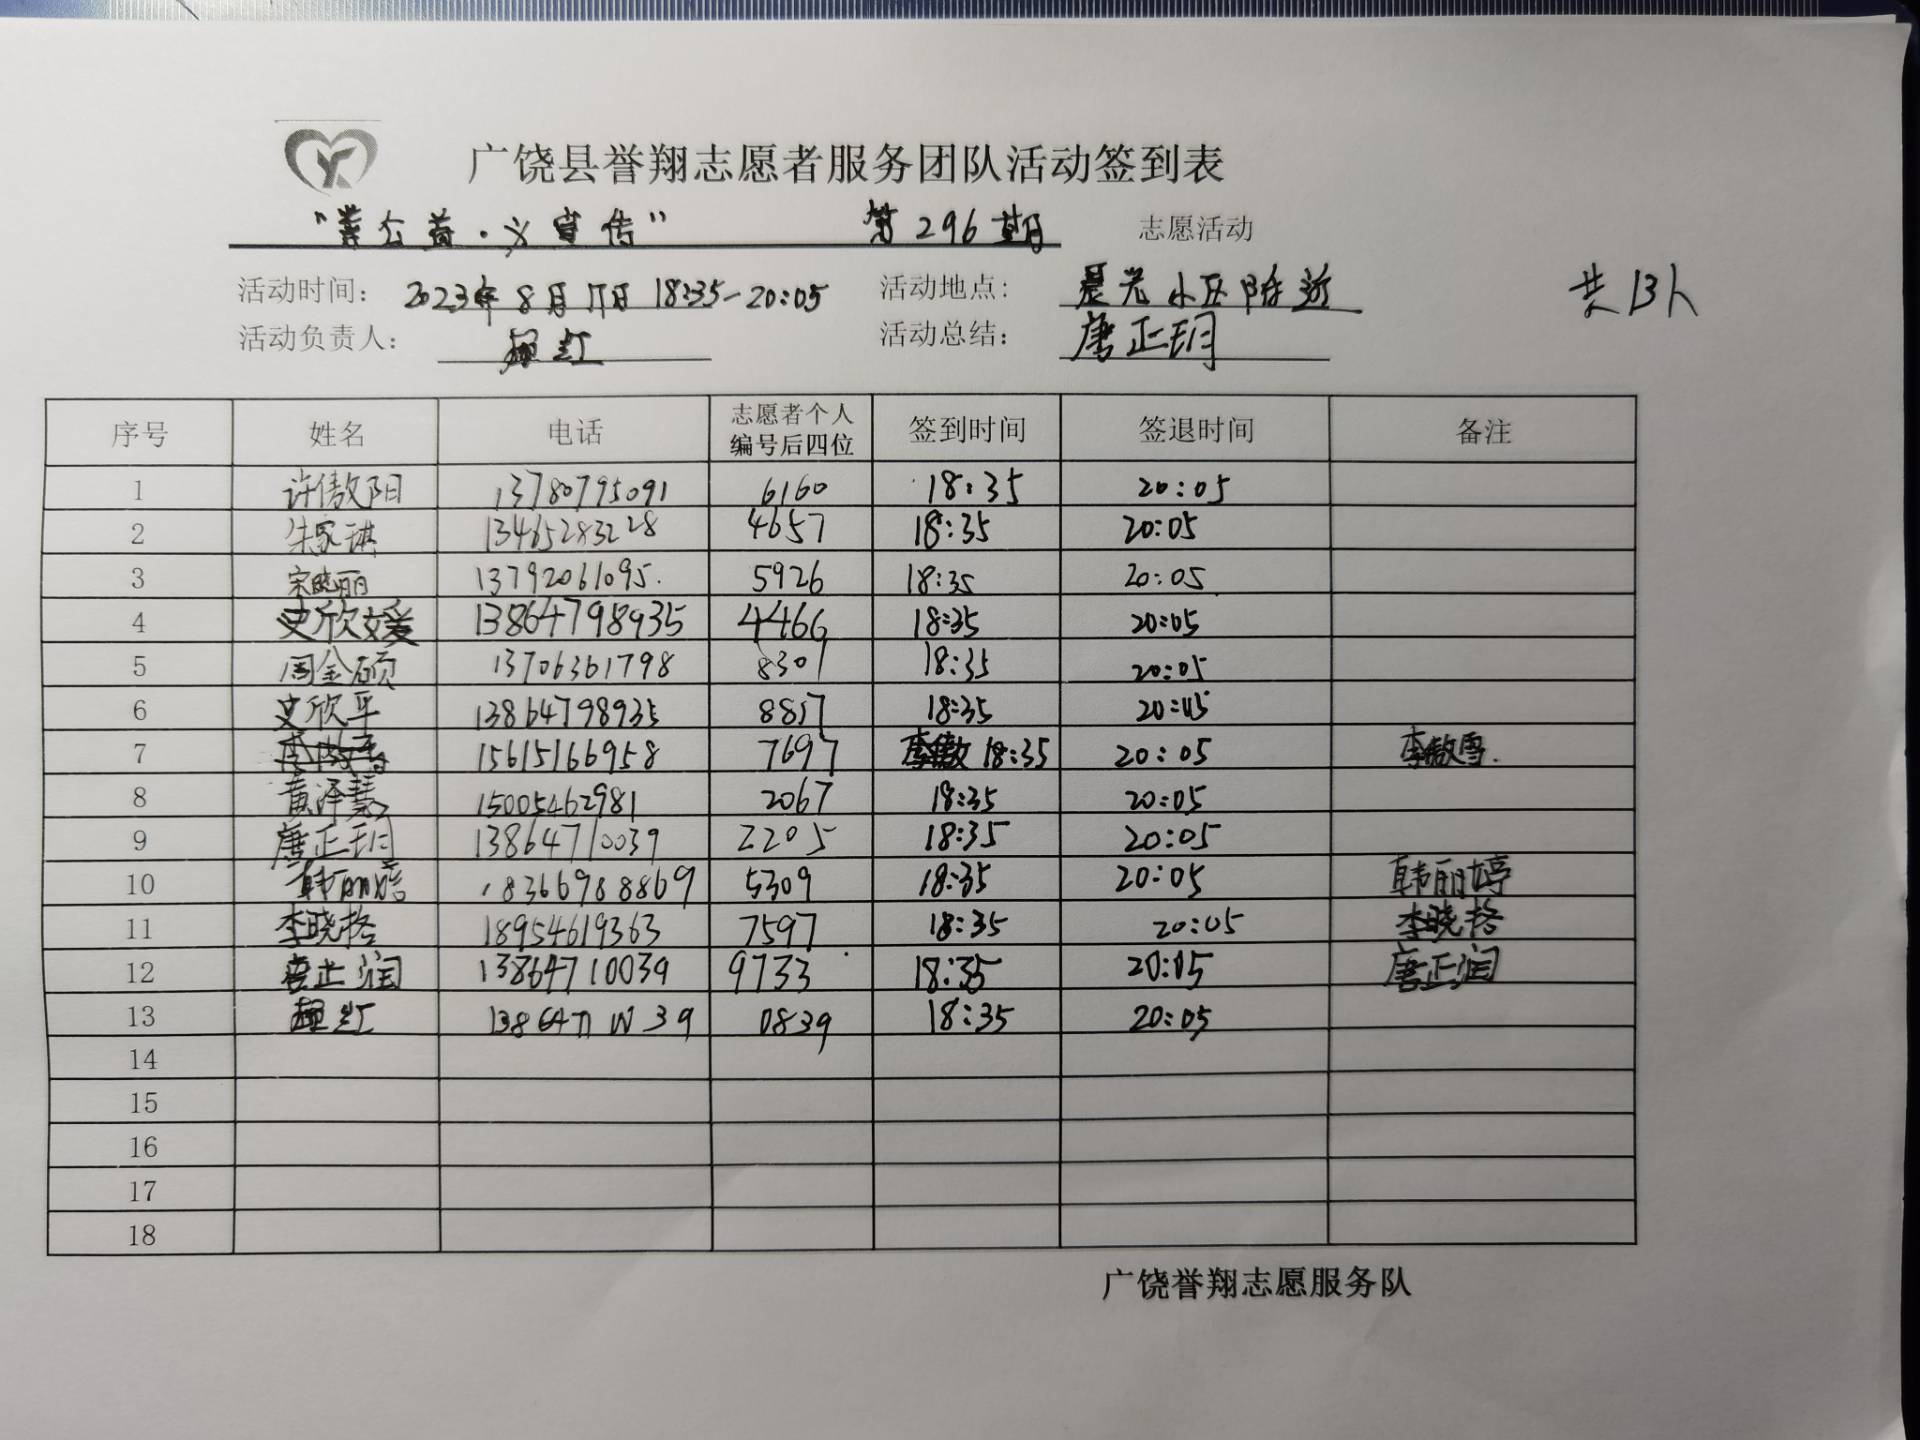 广饶县誉翔志愿者服务团队活动签到表
公益·义宣传” 第296期 志愿活动
活动时间: 2023年8月17日 18:35-20:05 活动地点: 晨光小区附近 共13人
活动负责人: 红 活动总结: 唐正玥
序号 姓名 电话 志愿者个人编号后四位 签到时间 签退时间 备注
1 许傲阳 13780795091 6160 18:35 20:05
2 朱家琪 13465283228 4657 18:35 20:05
3 宋晓丽 13792061095. 5926 18:35 20:05
4 史欣媛 13864798935 4466 18:35 20:05
5 周金硕 13706361798 8301 18:35 20:05
6 史欣平 13864798935 8857 18:35 20:05
7 15615166958 7697 18:35 20:05 李傲雪.
8 黄泽慧 15005462981 2067 18:35 20:05
9 唐正玥 13864710039 2205 18:35 20:05
10 韩丽婷 18366988869 5309 18:35 20:05 韩丽婷
11 李晓格 18954619363 7597 18:35 20:05 李晓格
12 唐正润 13864710039 9733 18:35 20:05 唐正润
13 红 13864710039 0839 18:35 20:05
14
15
16
17
18
广饶誉翔志愿服务队